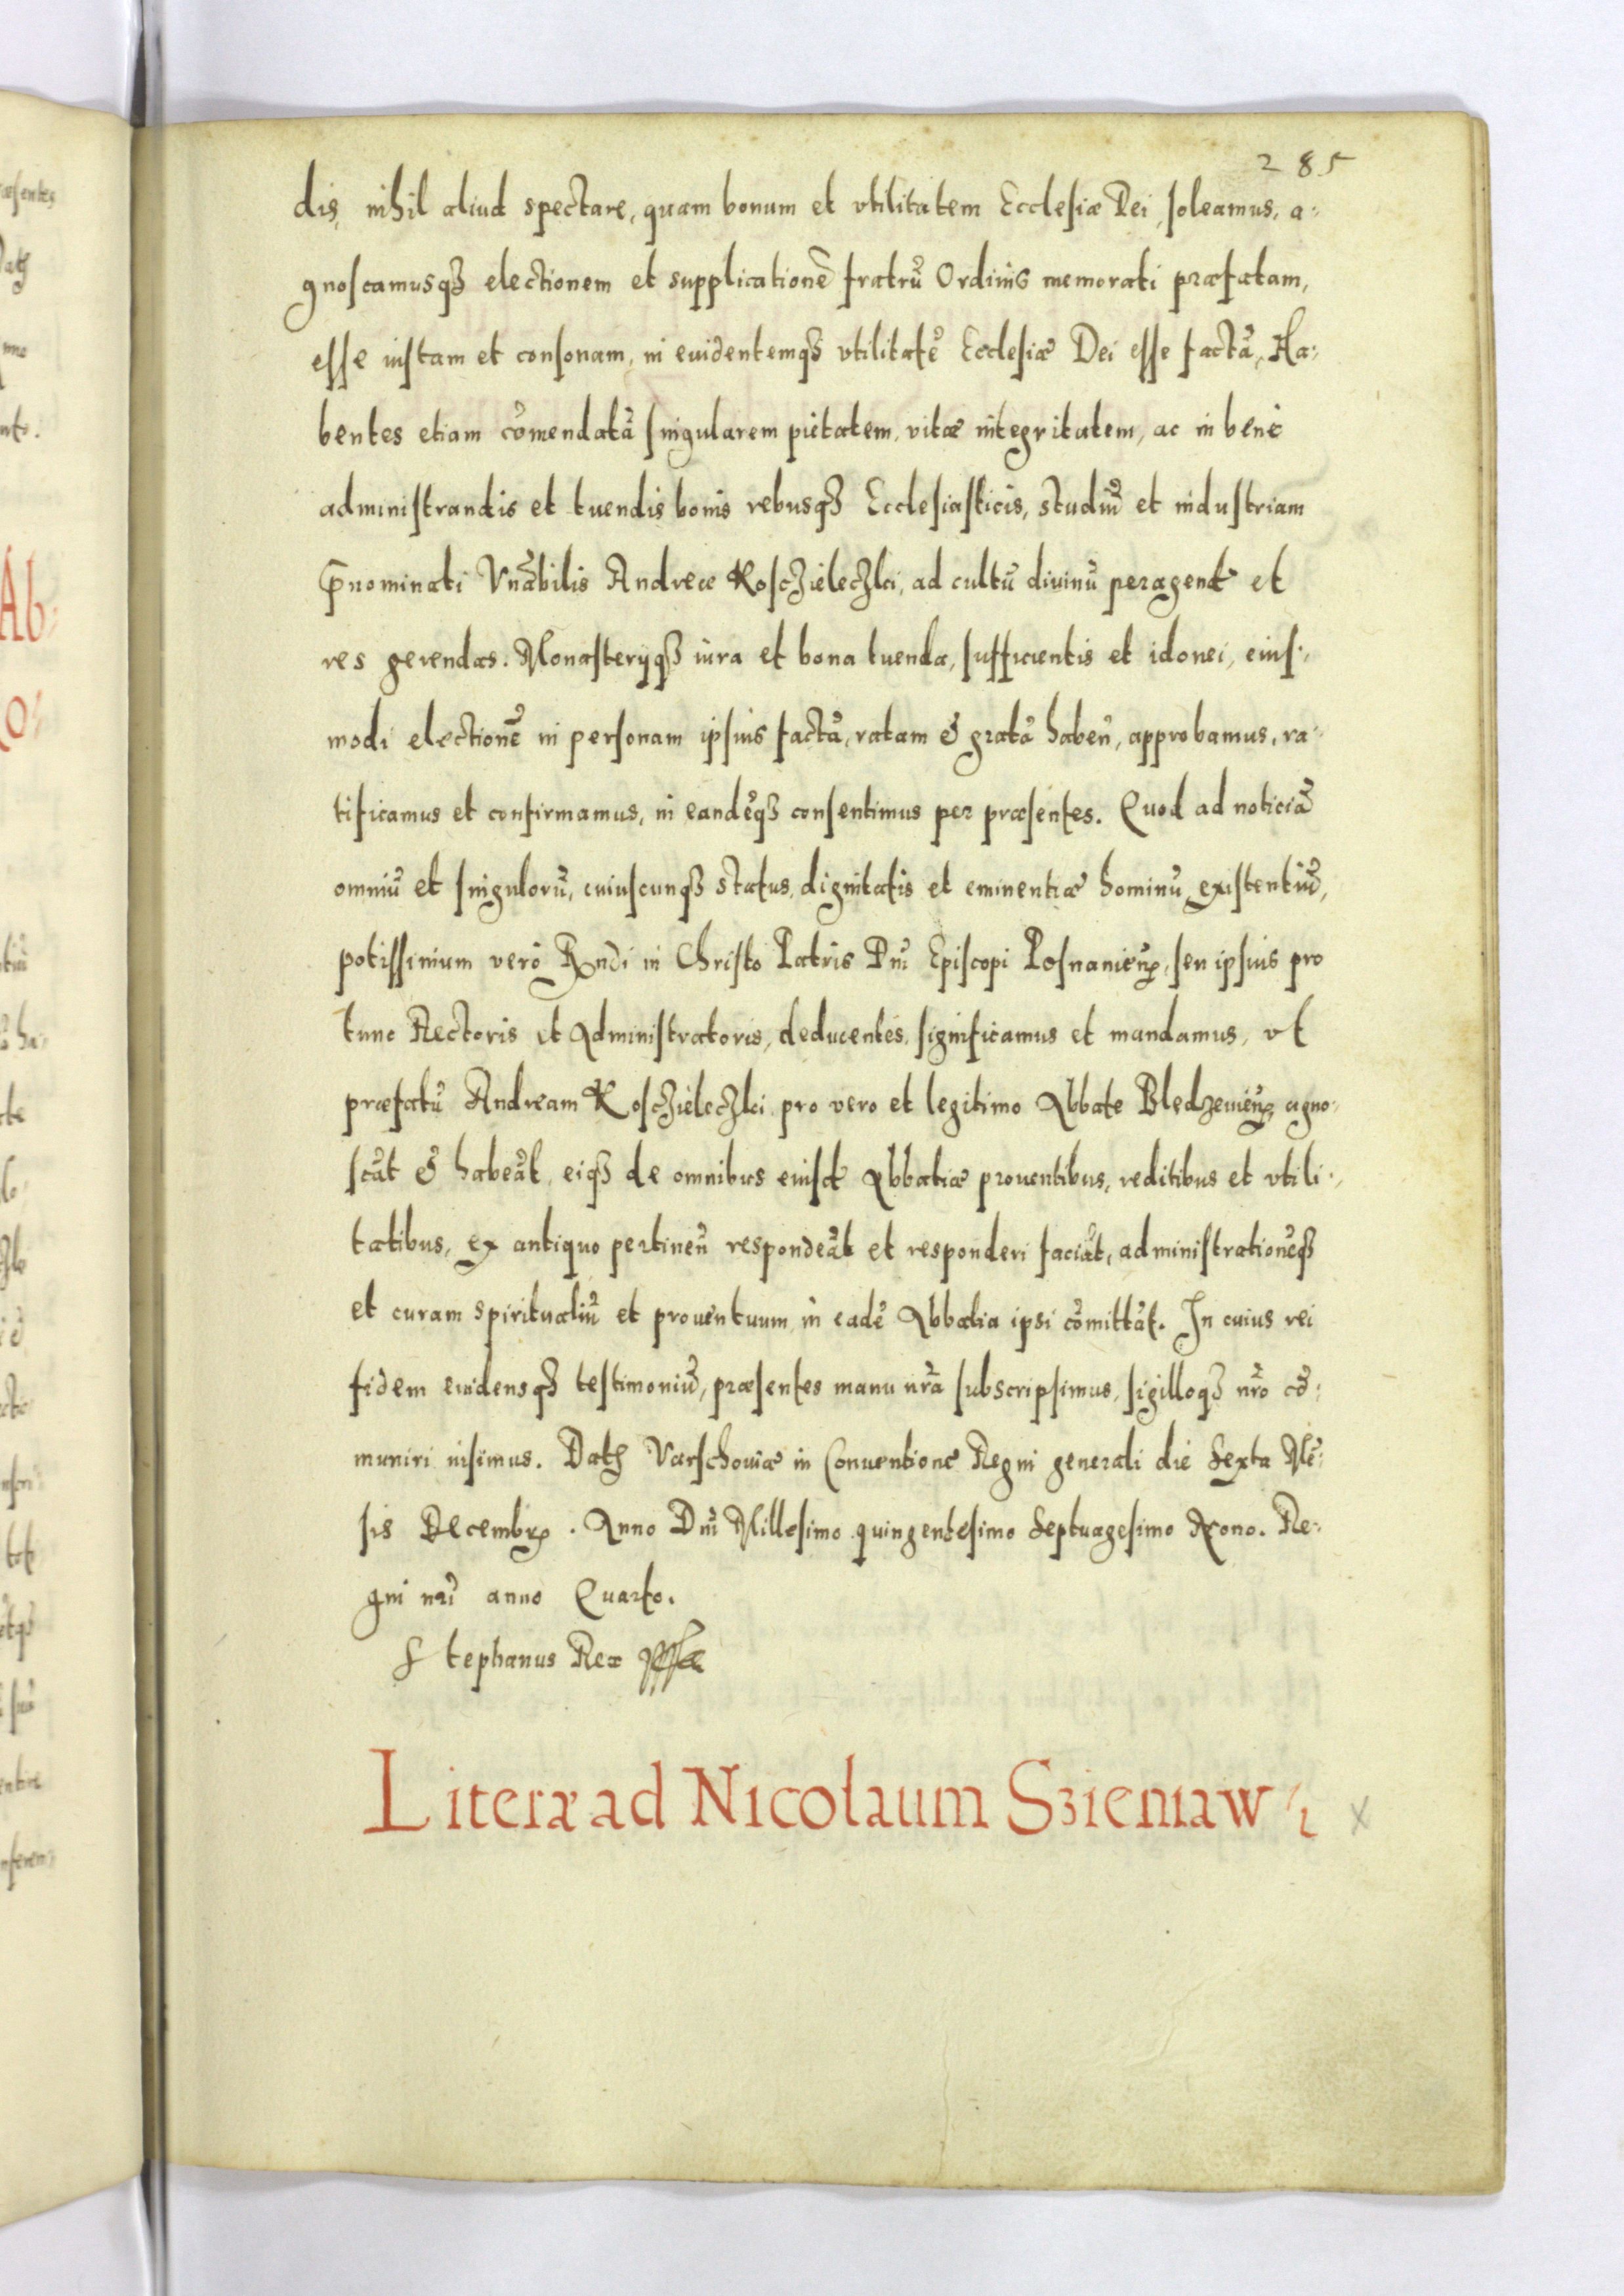 285
dis, nihil aliud spectare, quam bonum et vtilitatem Ecclesiæ Dei soleamus, a:
gnoscamusqꝫ electionem et supplicationē fratrū Ordinis memorati præfatam,
esse iustam et consonam, in euidentemqꝫ vtilitatē Ecclesiæ Dei esse factā, Ha:
bentes etiam cōmendatā singularem pietatem, vitæ integritatem, ac in benè
administrandis et tuendis bonis rebusqꝫ Ecclesiasticis, studiū et industriam
p̄nominati Vn̄abilis Andreæ Kosczieleczki, ad cultū diuinū peragend et
res gerendas. Monasterijqꝫ iura et bona tuenda, sufficientis et idonei, eius:
modi electionē in personam ipsius factā, ratam & gratā haben̄, approbamus, ra:
tificamus et confirmamus, in eandēqꝫ consentimus per præsentes. Quod ad noticiā
omniū et singulorū, cuiuscunqꝫ status, dignitatis et eminentiæ hominū existentiū,
potissimum verò Rn̄di in Christo Patris Dn̄i Episcopi Posnanien̄, seu ipsius pro
tunc Rectoris et Administratoris, deducentes, significamus et mandamus, vt
præfatū Andream Kosczieleczki pro vero et legitimo Abbate Bledzeuien̄ agno:
scāt & habeāt, eiqꝫ de omnibus eiusd Abbatiæ prouentibus, reditibus et vtili:
tatibus, ex antiquo pertinen̄ respondeāt et responderi faciāt, administrationēqꝫ
et curam spiritualiū et prouentuum in eadē Abbatia ipsi cōmittāt. In cuius rei
fidem euidensqꝫ testimoniū, præsentes manu nr̄a subscripsimus, sigilloqꝫ nr̄o cō:
muniri iusimus. Datꝫ Varschouiæ in Conuentione Regni generali die Sexta Mē:
sis Decembr. Anno Dn̄i Millesimo quingentesimo Septuagesimo Nono. Re:
gni nr̄i anno Quarto.
Stephanus Rex
Literæ ad Nicolaum Szieniaw